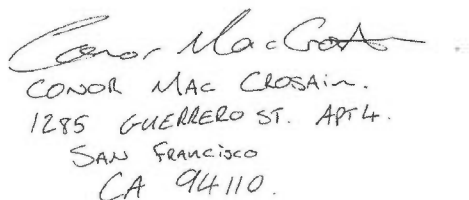 Conor Mac Crosain
CONOR MAC CROSAIN.
1285 GUERRERO ST. APT 4.
SAN FRANCISCO
CA 94110.